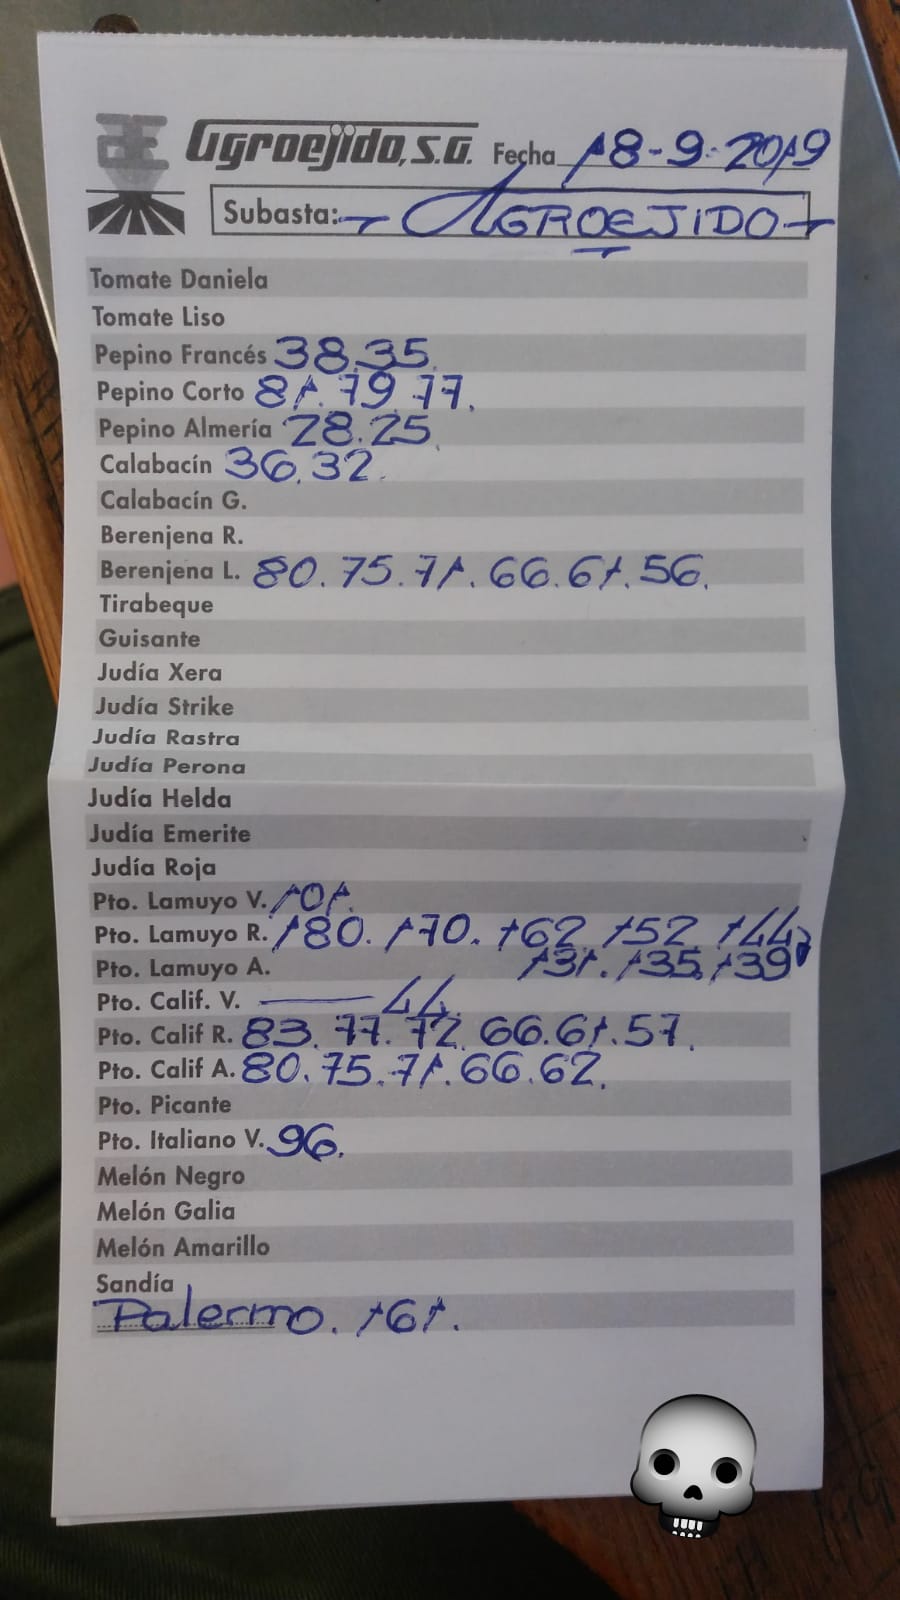 Agroejido, S.A. Fecha 18-9-2019
Subasta: AGROEJIDO
Tomate Daniela
Tomate Liso
Pepino Francés 38.35.
Pepino Corto 81.79.77.
Pepino Almería 28.25.
Calabacín 36.32.
Calabacín G.
Berenjena R.
Berenjena L. 80.75.71.66.61.56.
Tirabeque
Guisante
Judía Xera
Judía Strike
Judía Rastra
Judía Perona
Judía Helda
Judía Emerite
Judía Roja
Pto. Lamuyo V. 101.
Pto. Lamuyo R. 180. 170. 162. 152. 144
Pto. Lamuyo A. 131. 135. 139
Pto. Calif. V. 44.
Pto. Calif R. 83.77.72.66.61.57.
Pto. Calif A. 80.75.71.66.62.
Pto. Picante
Pto. Italiano V. 96.
Melón Negro
Melón Galia
Melón Amarillo
Sandía
Palermo. 161.